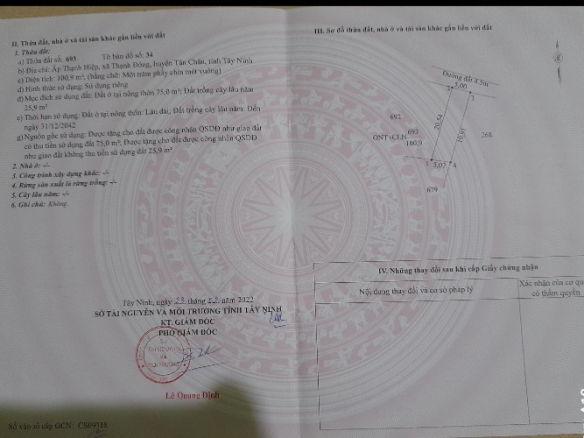 II. Thửa đất, nhà ở và tài sản khác gắn liền với đất
1. Thửa đất:
a) Thửa đất số: 693 Tờ bản đồ số: 34
b) Địa chỉ: Ấp Thạnh Hiệp, xã Thạnh Đông, huyện Tân Châu, tỉnh Tây Ninh
c) Diện tích: 100,9 m², (bằng chữ: Một trăm phẩy chín mét vuông)
d) Hình thức sử dụng: Sử dụng riêng
đ) Mục đích sử dụng đất: Đất ở tại nông thôn 75,0 m²; Đất trồng cây lâu năm
25,9 m²
e) Thời hạn sử dụng: Đất ở tại nông thôn: Lâu dài; Đất trồng cây lâu năm: Đến
ngày 31/12/2042
g) Nguồn gốc sử dụng: Được tặng cho đất được công nhận QSDĐ như giao đất
có thu tiền sử dụng đất 75,0 m²; Được tặng cho đất được công nhận QSDĐ
như giao đất không thu tiền sử dụng đất 25,9 m²
2. Nhà ở: -/-
3. Công trình xây dựng khác: -/-
4. Rừng sản xuất là rừng trồng: -/-
5. Cây lâu năm: -/-
6. Ghi chú: Không.
Tây Ninh, ngày tháng năm 2022
SỞ TÀI NGUYÊN VÀ MÔI TRƯỜNG TỈNH TÂY NINH
KT. GIÁM ĐỐC
PHÓ GIÁM ĐỐC
Lê Quang Định
Số vào sổ cấp GCN:
III. Sơ đồ thửa đất, nhà ở và tài sản khác gắn liền với đất
Đường đất
5,00
692
693
ONT+CLN
100,9
268
5,07
679
IV. Những thay đổi sau khi cấp Giấy chứng nhận
Nội dung thay đổi và cơ sở pháp lý
Xác nhận của cơ qu
có thẩm quyền